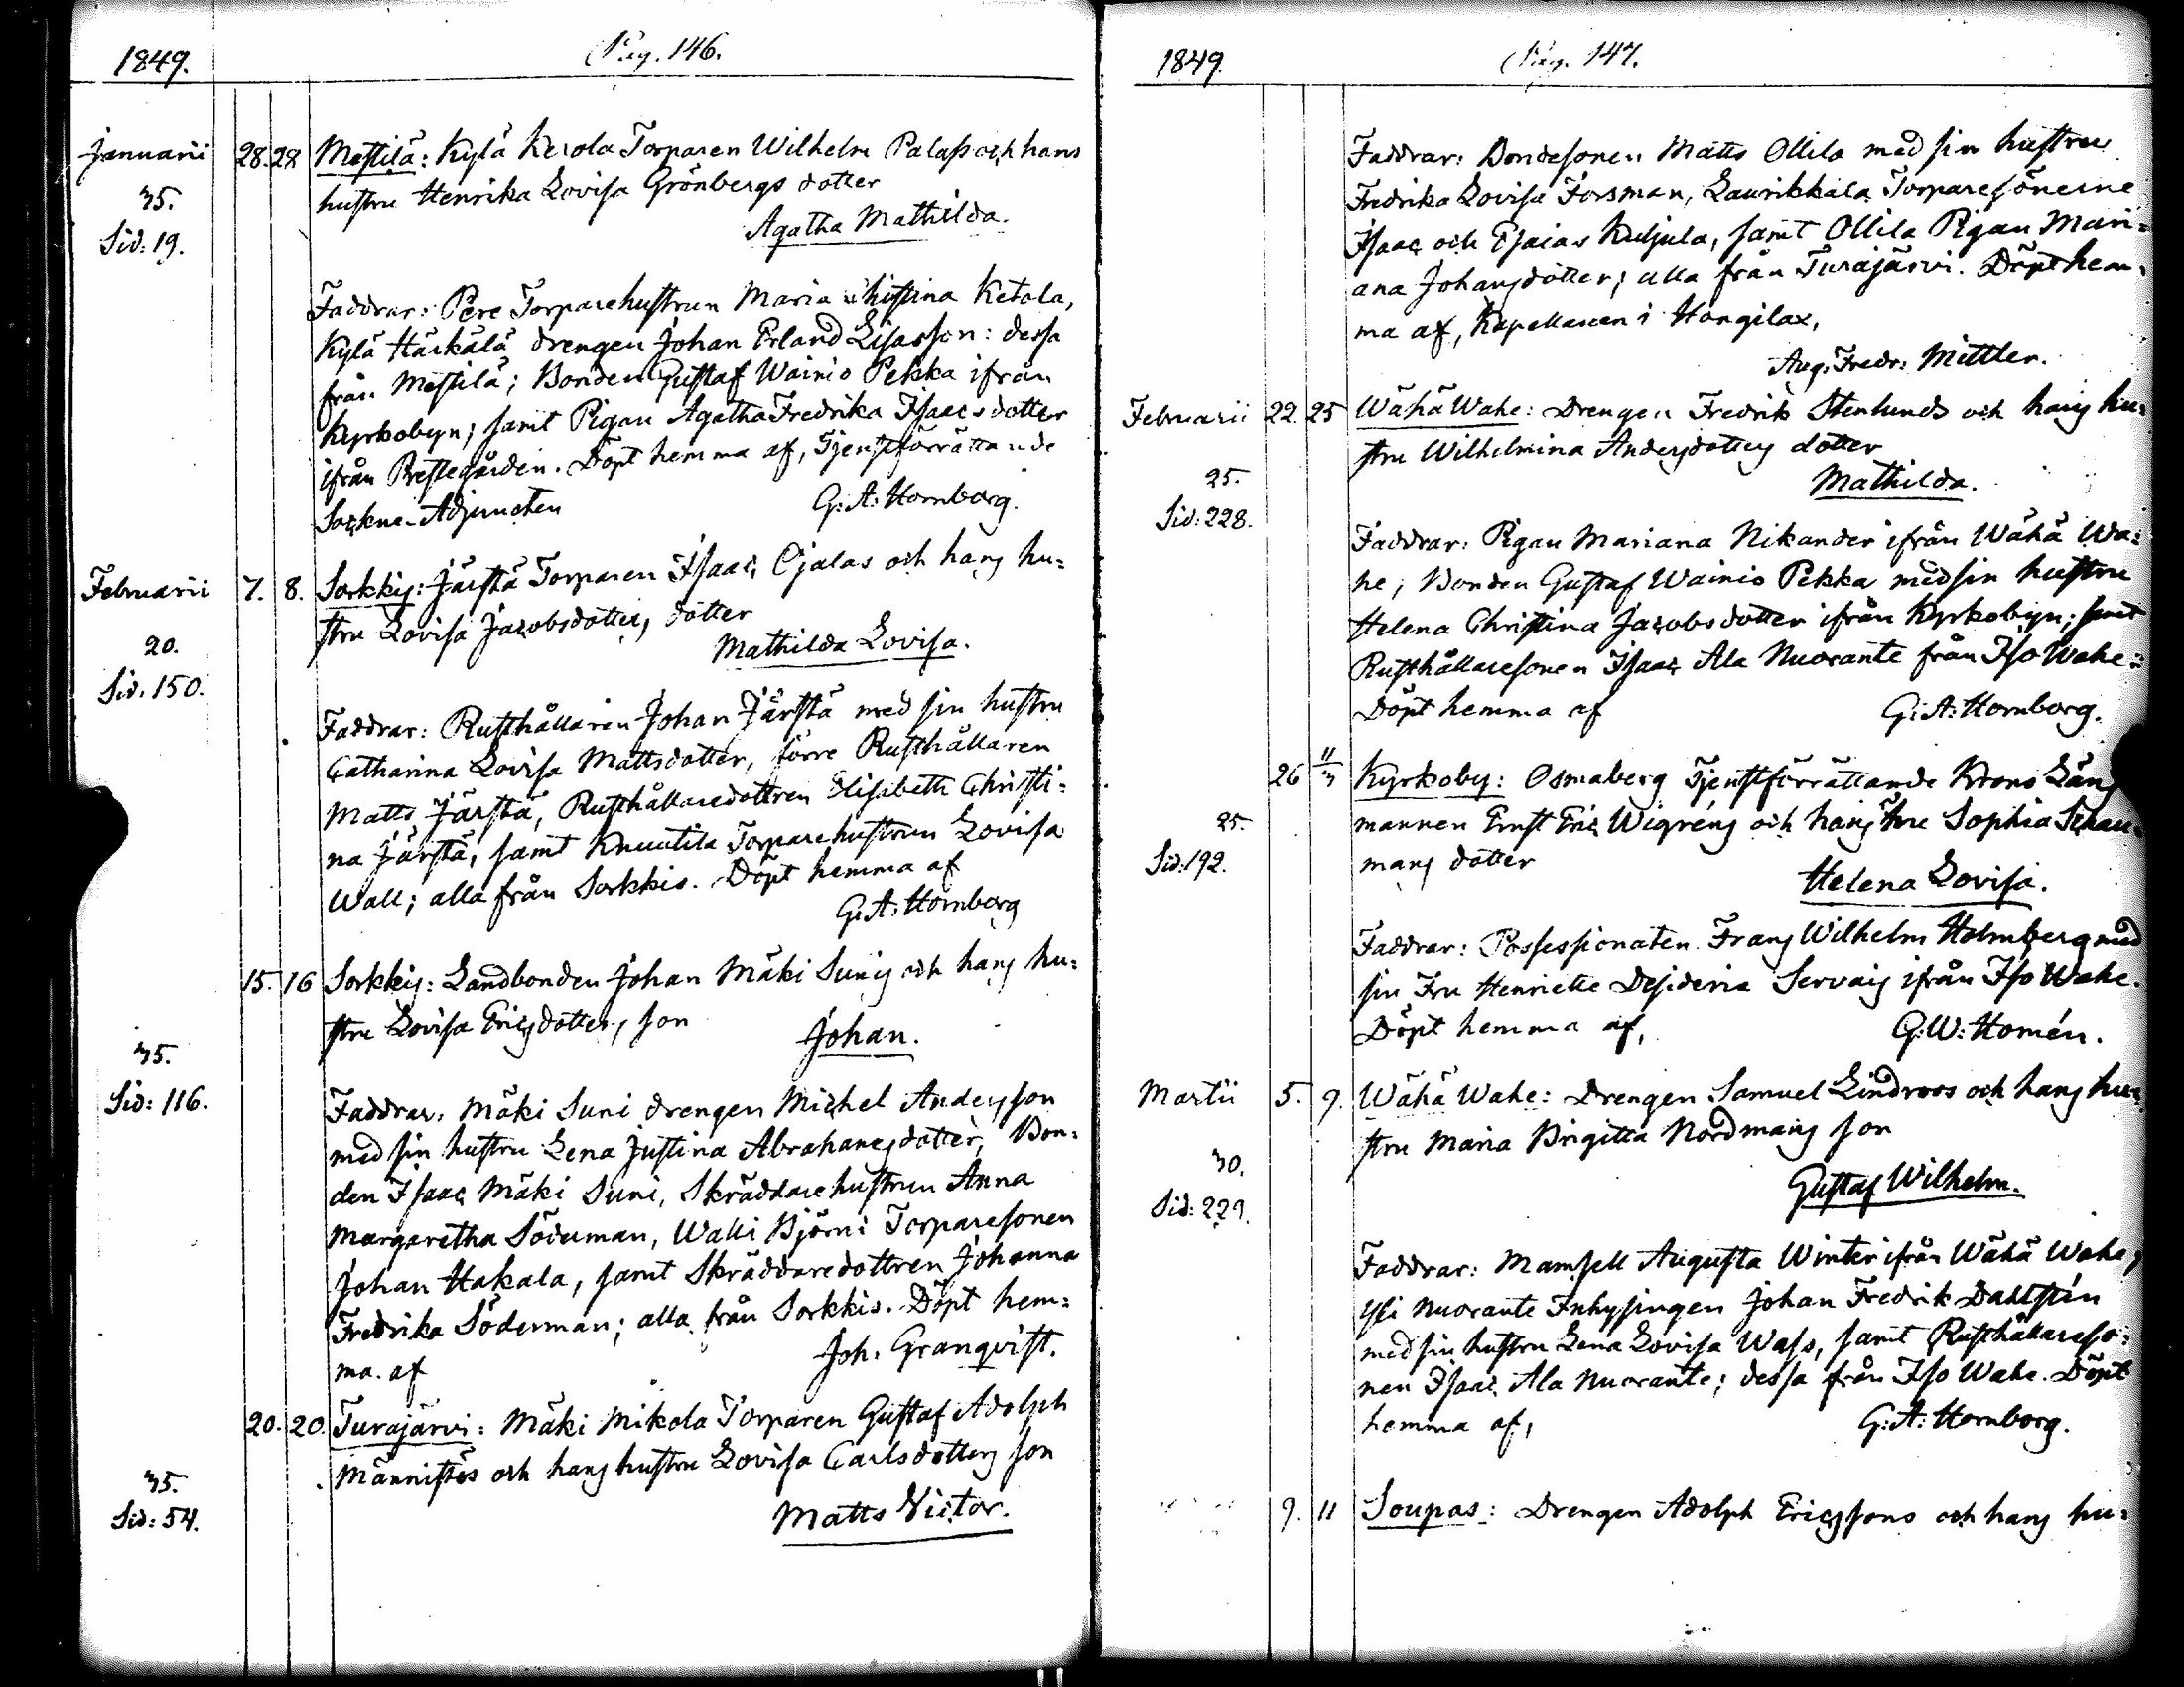 1849.
Pag. 146.
Januarii 28. 28 Mestilä: Kylä Kerola Torparen Wilhelm Palass och hans
35.
hustru Henrika Lovisa Grönbergs dotter
Sid: 19.
Agatha Mathilda.
Faddrar: Pere Torparehustrun Maria Christina Ketola,
Kylä Härkälä drengen Johan Erland Lisasson: dessa
från Mestilä; Bonden Gustaf Wainio Pekka ifrån
Kyrkobyn; samt Pigan Agatha Fredrika Isaacsdotter
ifrån Prestegården. Döpt hemma af, Tjenstförrättande
Sockne-Adjuncten
G: A: Hornborg.
Februarii 7. 8. Sorkkis: Järstä Torparen Isaac Ojalas och hans hu=
20.
stru Lovisa Jacobsdotters, dotter
Sid. 150.
Mathilda Lovisa.
Faddrar: Rusthållaren Johan Järstä med sin hustru
Catharina Lovisa Mattsdotter, förre Rusthållaren
Matts Järstä, Rusthållaredottren Elisabeth Christi=
na Järstä, samt Knuutila Torparehustrun Lovisa
Wall; alla från Sorkkis. Döpt hemma af
G: A: Hornborg
15. 16 Sorkkis: Landbonden Johan Mäki Sunis och hans hu=
stru Lovisa Ericsdotters, son
Johan.
35.
Sid: 116.
Faddrar: Mäki Suni drengen Michel Andersson
med sin hustru Lena Justina Abrahamsdotter, Bon=
den Isaac Mäki Suni, Skräddarehustrun Anna
Margaretha Söderman, Walli Björni Torparesonen
Johan Hakala, samt Skräddaredottren Johanna
Fredrika Söderman; alla från Sorkkis. Döpt hem=
ma af
Joh. Granqvist.
20. 20. Turajärvi: Mäki Mikola Torparen Gustaf Adolph
Männistös och hans hustru Lovisa Carlsdotters son
35.
Sid: 54.
Matts Victor.
1849.
Pag. 147.
Faddrar: Bondesonen Matts Ollila med sin hustru
Fredrika Lovisa Forsman, Laurikkala Torparesönerne
Isaac och Esaias Kuljula, samt Ollila Pigan Mari=
ana Johansdotter; alla från Turajärvi. Döpt hem=
ma af, Kapellanen i Hongilax,
Aug: Fredr: Mittler.
Februarii 22. 25 Wähä Wahe: Drengen Fredrik Stenlunds och hans hu=
stru Wilhelmina Andersdotters dotter
25.
Mathilda.
Sid: 228.
Faddrar: Pigan Mariana Nikander ifrån Wähä Wa=
he; Bonden Gustaf Wainio Pekka med sin hustru
Helena Christina Jacobsdotter ifrån Kyrkobyn; samt
Rusthållaresonen Isaac Ala Nuorante från Iso Wahe:
Döpt hemma af
G: A: Hornborg.
26 11/3 Kyrkoby: Osmaberg Tjenstförrättande Krono Läns
25.
mannen Ernst Eric Wigréns och hans Fru Sophia Schau=
Sid: 192.
mans dotter
Helena Lovisa.
Faddrar: Possessionaten Frans Wilhelm Holmberg med
sin Fru Henriette Desideria Servais ifrån Iso Wahe.
Döpt hemma af,
G: W: Homén.
Martii 5. 9. Wähä Wahe: Drengen Samuel Lindroos och hans hu=
stru Maria Brigitta Nordmans son
30.
Gustaf Wilhelm.
Sid: 229.
Faddrar: Mamsell Augusta Winter ifrån Wähä Wahe;
Yli Nuorante Inhysingen Johan Fredrik Dahlstén
med sin hustru Lena Lovisa Wass, samt Rusthållareso=
nen Isaac Ala Nuorante; dessa från Iso Wahe. Döpt
hemma af,
G: A: Hornborg.
9. 11 Soupas: Drengen Adolph Ericssons och hans hu=